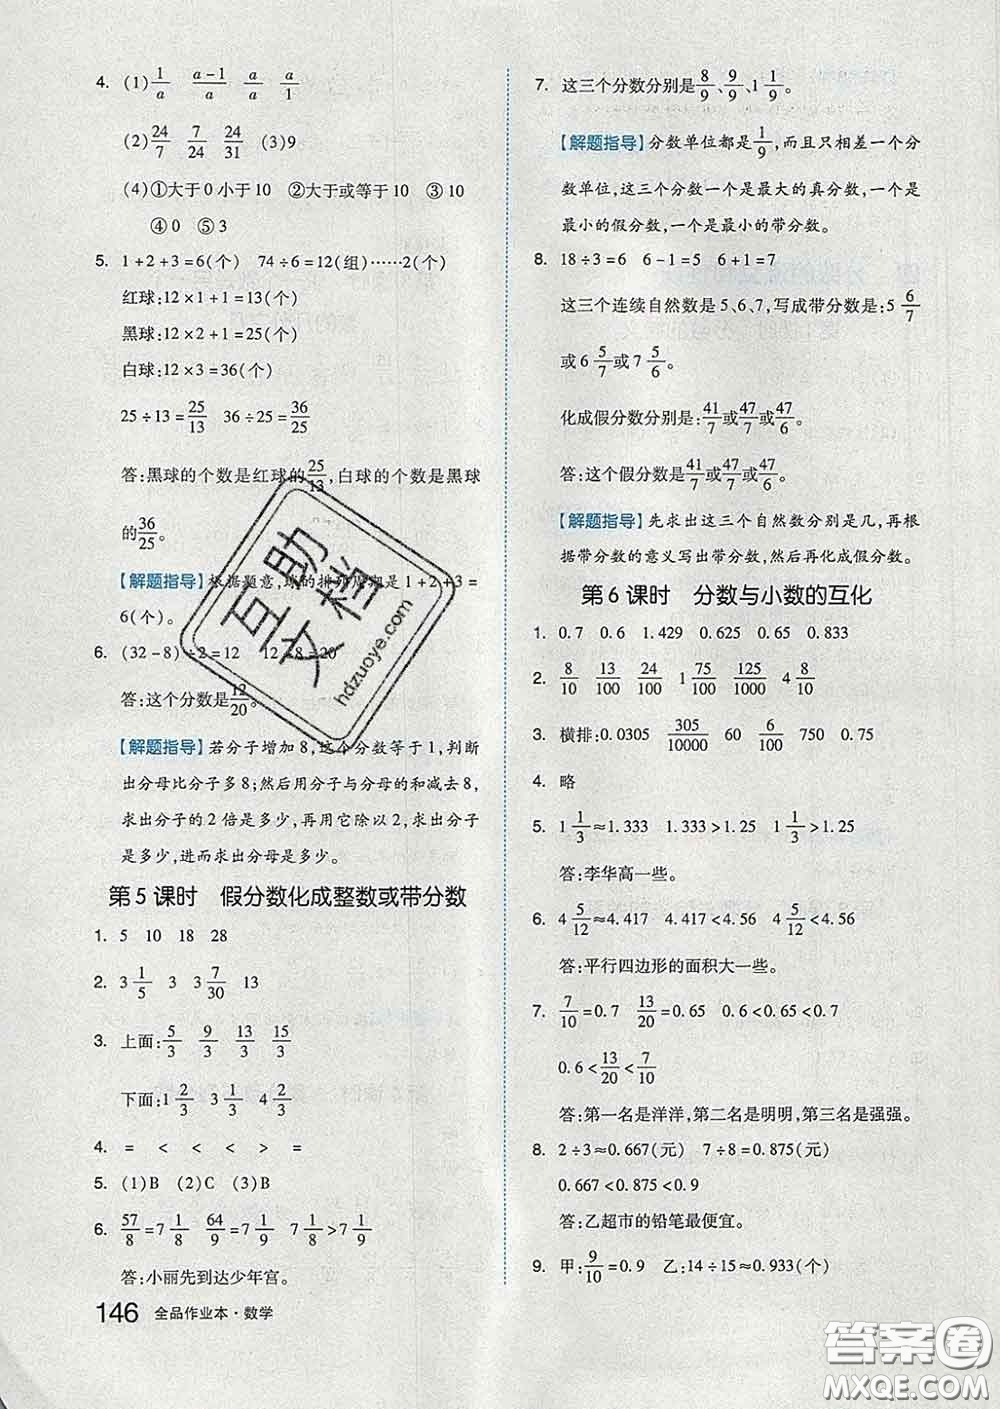 4. (1) 1/a  (a-1)/a  a/a  a/1
(2) 24/7  7/24  24/31  (3)9
(4)①大于0小于10  ②大于或等于10  ③10
④0  ⑤3
5. 1+2+3=6(个)  74÷6=12(组)……2(个)
红球:12×1+1=13(个)
黑球:12×2+1=25(个)
白球:12×3=36(个)
25÷13=25/13  36÷25=36/25
答:黑球的个数是红球的25/13,白球的个数是黑球
的36/25。
【解题指导】根据题意,球的排列周期是1+2+3=
6(个)。
6. (32-8)÷2=12  12+8=20
答:这个分数是12/20。
【解题指导】若分子增加8,这个分数等于1,判断
出分母比分子多8;然后用分子与分母的和减去8,
求出分子的2倍是多少,再用它除以2,求出分子
是多少,进而求出分母是多少。
第5课时  假分数化成整数或带分数
1. 5  10  18  28
2. 3 1/5  3  3 7/30  13
3. 上面:5/3  9/3  13/3  15/3
下面:1 2/3  3 1/3  4 2/3
4. =  <  <  <  >  =
5. (1)B  (2)C  (3)B
6. 57/8=7 1/8  64/9=7 1/9  7 1/8>7 1/9
答:小丽先到达少年宫。
146  全品作业本·数学
7. 这三个分数分别是8/9、9/9、1 1/9。
【解题指导】分数单位都是1/9,而且只相差一个分
数单位,这三个分数一个是最大的真分数,一个是
最小的假分数,一个是最小的带分数。
8. 18÷3=6  6-1=5  6+1=7
这三个连续自然数是5、6、7,写成带分数是:5 6/7
或6 5/7或7 5/6。
化成假分数分别是:41/7或47/7或47/6。
答:这个假分数是41/7或47/7或47/6。
【解题指导】先求出这三个自然数分别是几,再根
据带分数的意义写出带分数,然后再化成假分数。
第6课时  分数与小数的互化
1. 0.7  0.6  1.429  0.625  0.65  0.833
2. 8/10  13/10  24/100  1 75/100  125/1000  4 8/10
3. 横排:0.0305  305/10000  60  6/100  750  0.75
4. 略
5. 1 1/3≈1.333  1.333>1.25  1 1/3>1.25
答:李华高一些。
6. 4 5/12≈4.417  4.417<4.56  4 5/12<4.56
答:平行四边形的面积大一些。
7. 7/10=0.7  13/20=0.65  0.6<0.65<0.7
0.6<13/20<7/10
答:第一名是洋洋,第二名是明明,第三名是强强。
8. 2÷3≈0.667(元)  7÷8=0.875(元)
0.667<0.875<0.9
答:乙超市的铅笔最便宜。
9. 甲:9/10=0.9  乙:14÷15≈0.933(个)
互助文档
hdzuoye.com
答案圈
MXQE.COM